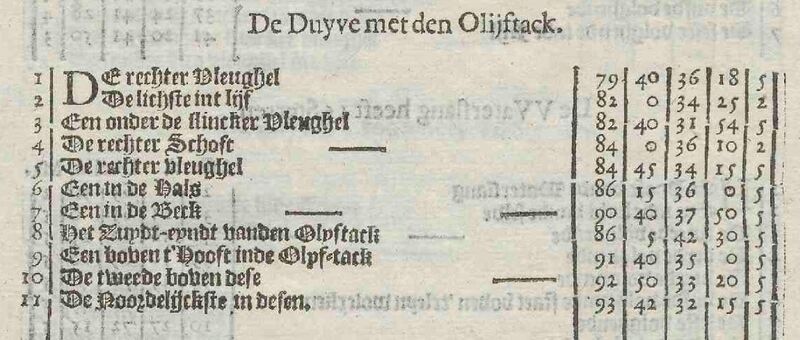 De Duyve met den Olijftack.
1 DE rechter Vleughel 79 40 36 18 5
2 De lichste int lijf 82 0 34 25 2
3 Een onder de slincker Vleughel 82 40 31 54 5
4 De rechter Schoft 84 0 36 10 2
5 De rachter vleughel 84 45 34 15 5
6 Een in de Hals 86 15 36 0 5
7 Een in de Beck 90 40 37 50 5
8 Het Zuydt-eyndt vanden Olyftack 86 5 42 30 5
9 Een boven t'Hooft inde Olyf-tack 91 40 35 0 5
10 De tweede boven dese 92 50 33 20 5
11 De Noordelijckste in desen. 93 42 32 15 5